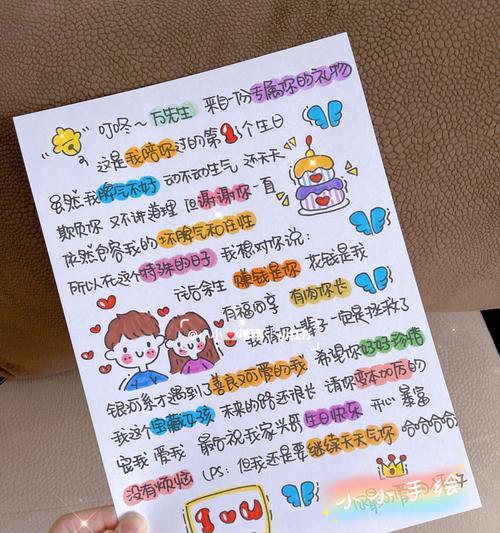 叮咚～万先生 来自一份专属你的礼物
这是我陪你过的第1个生日
虽然我脾气不好 动不动生气 还天天
欺负你 又不讲道理 但谢谢你一直
依然包容我的坏脾气和任性
所以在这个特殊的日子 我想对你说：
往后余生 赚钱是你 花钱是我
有福同享 有肉你长
你上辈子一定是拯救了
银河系才遇到了善良可爱的我 希望你好好珍惜
我这个宝藏女孩 未来的路还很长 请你变本加厉的
宠我 爱我 最后祝我家 哥生日快乐 开心 暴富
没有烦恼 (PS：但我还是要继续天天气你 哈哈哈哈
I U
小小手绘